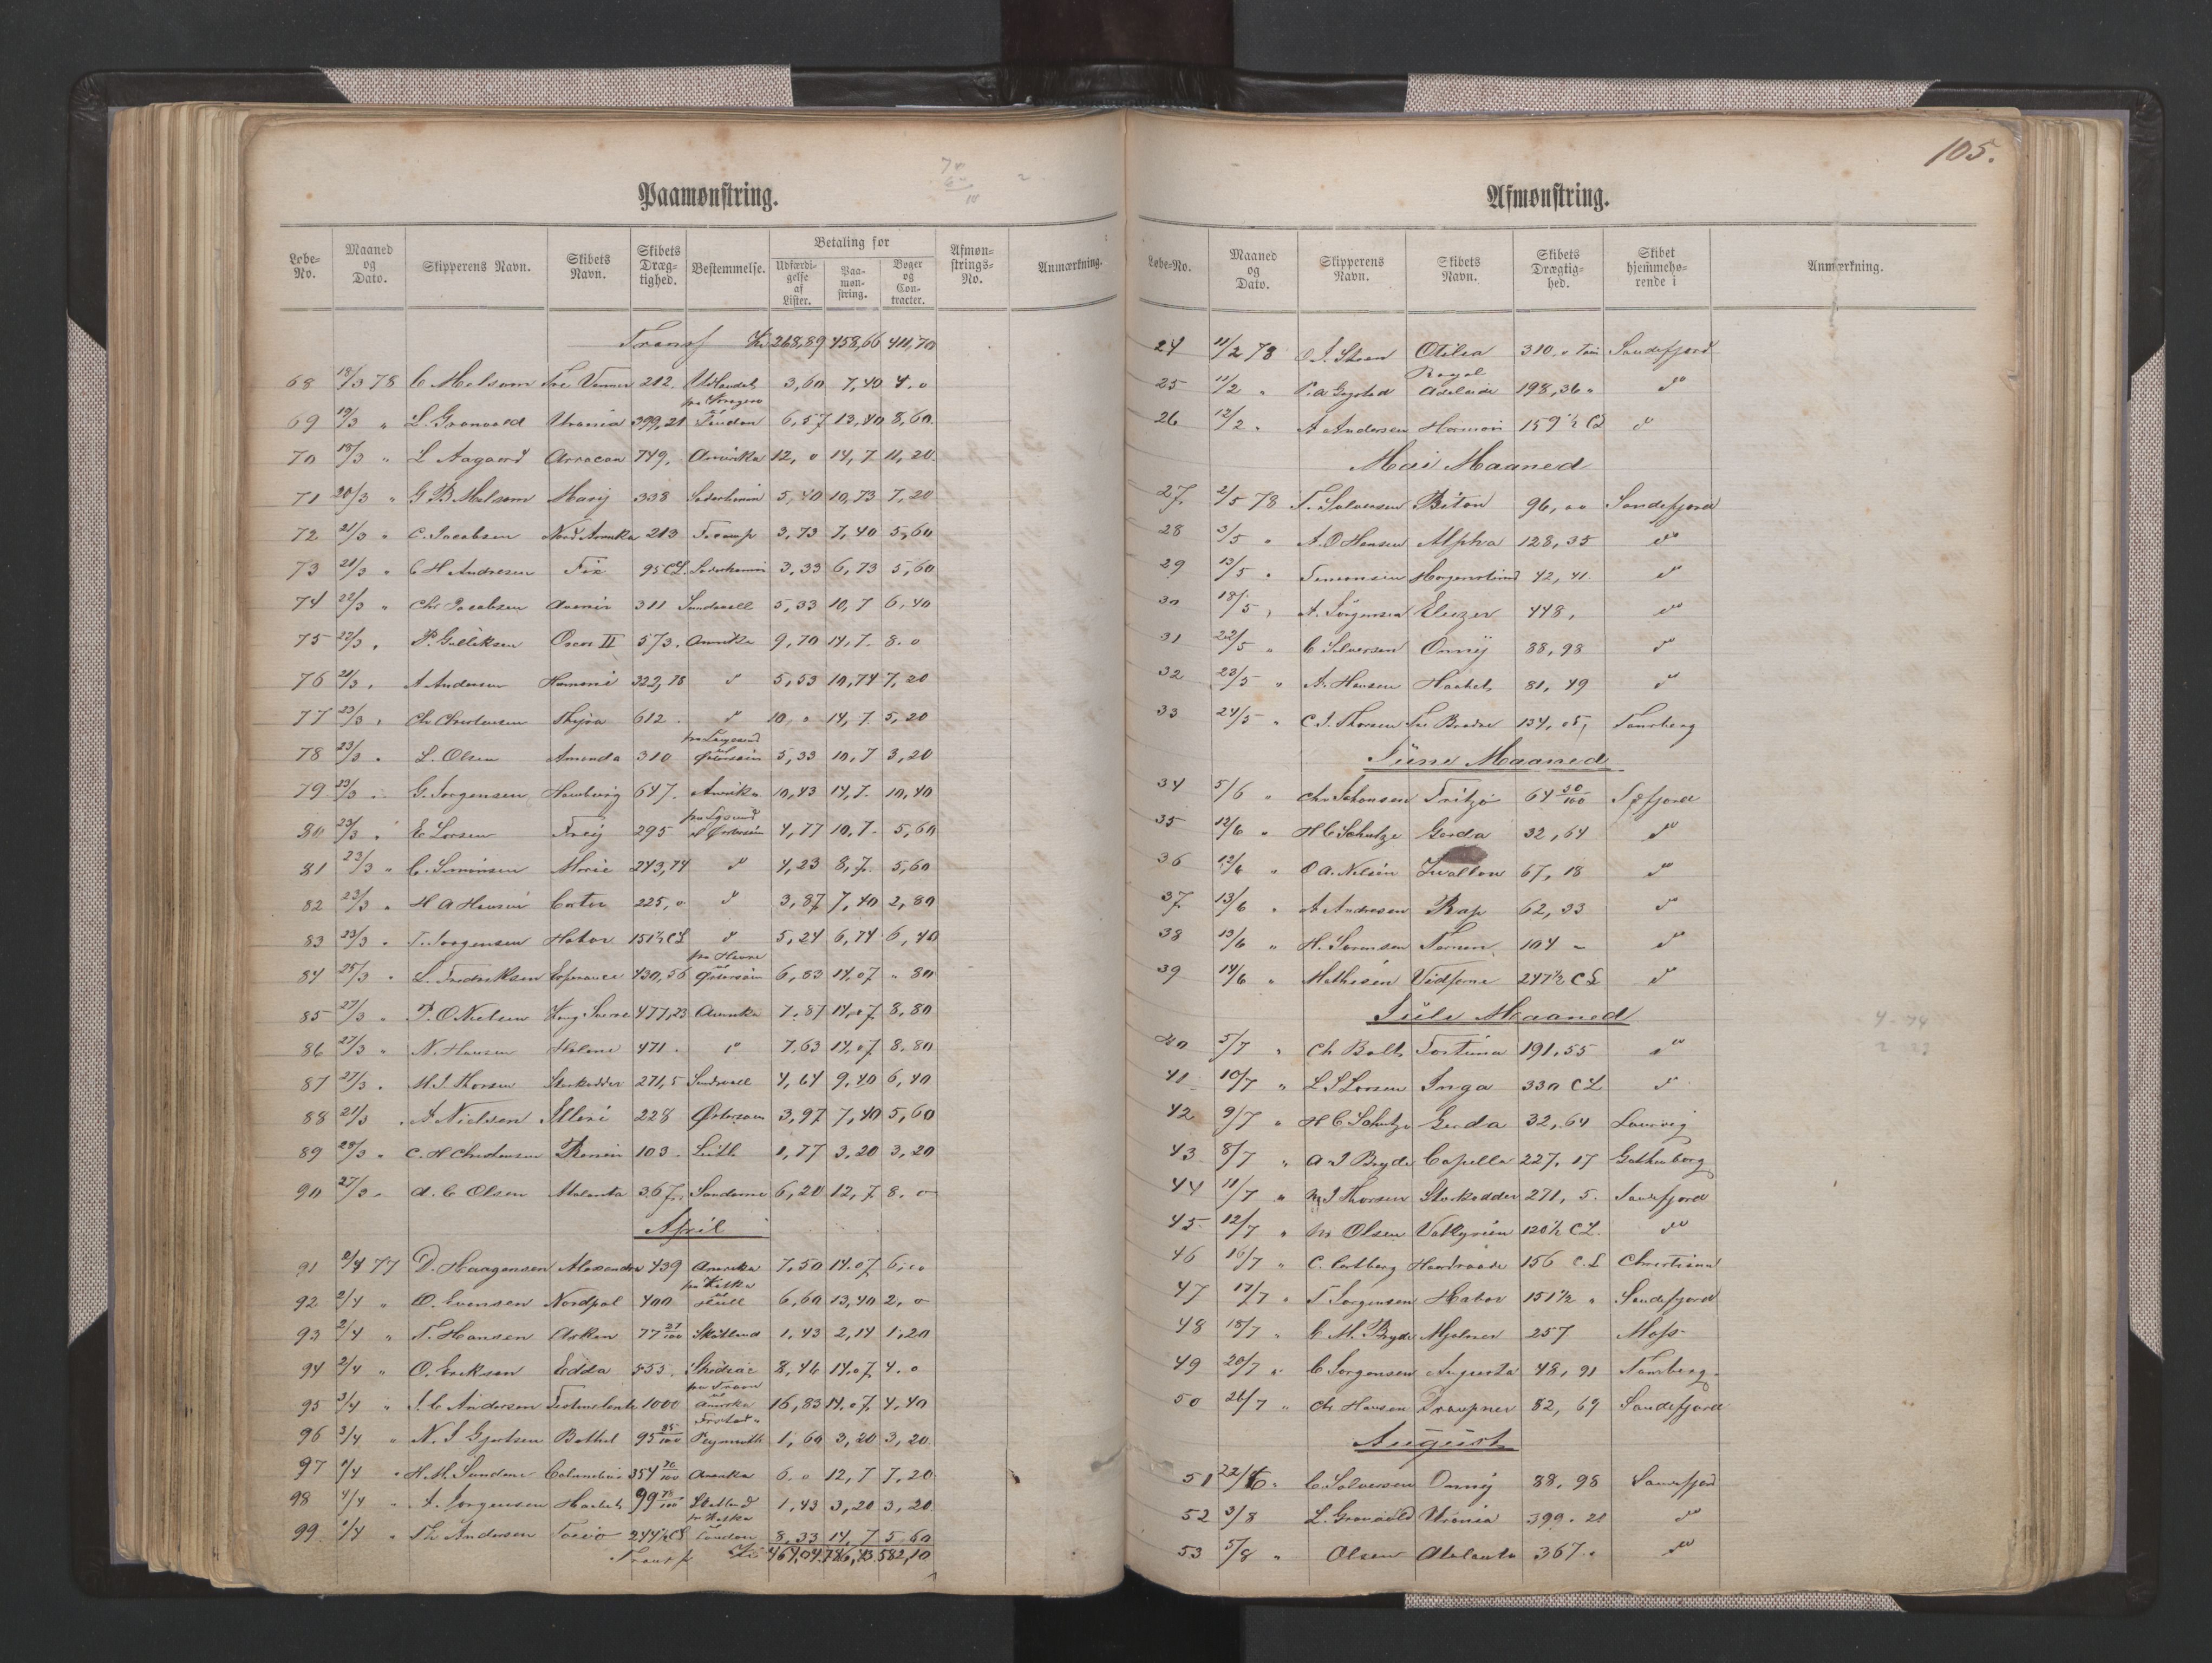 105.
Paamønstring.
Løbe-No. Maaned og Dato. Skipperens Navn. Skibets Navn. Skibets Dræg-tighed. Bestemmelse. Betaling for Udfærdi-gelse af Lister. Paa-møn-string. Bøger og Con-tracter. Afmøn-strings-No. Anmærkning.
Transp Kr 268,89 458,66 411,70
68 18/3 78 C Melsom Tre Venner 212. 3,60 7,40 4.0
69 19/3 " L. Grønvold Urania 399,21 London 6,57 13,40 8,60
70 18/3 " L Aagaard Arracan 749. Amerika 12,0 14,7 11,20
71 20/3 " G B Melsom Mary 338 Søderhamn 5,40 10,73 7,20
72 21/3 " C. Jacobsen Nord Amerika 213 3,73 7,40 5,60
73 21/3 " C H Andresen 95 CL. Søderhamn 3,33 6,73 5,60
74 22/3 " Chr Jacobsen Avenir 311 Sundsvall 5,33 10,7 6,40
75 22/3 " P. Gulliksen Oscar II 573. Amerika 9,70 14,7. 8.0
76 21/3 " A Andersen 322,78 do 5,53 10,74 7,20
77 23/3 " Ch Christensen Thyra 612. do 10,0 14,7 5,20
78 23/3 " L. Olsen Amanda 310 fra Langesund til Østersøen 5,33 10,7 3,20
79 23/3 " G. Jørgensen 647. Amerika 10,43 14,7. 10,40
80 23/3 " E Larsen Frey 295 Østersøen 4,77 10,7. 5,60
81 23/3 " C. Simonsen Marie 243,74 do 4,23 8,7. 5,60
82 23/3 " H A Hansen Castor 225,0 do 3,87 7,40 2,80
83 23/3 " T. Jørgensen Habor 151½ CL do 5,24 6,74 6,40
84 25/3 " L. Fredriksen Esperance 430,56 fra Havre til Østersøen 6,83 14.07 " 80
85 27/3 " P. O Nielsen Kong Sverre 477,23 Amerika 7.87 14,07 8,80
86 27/3 " N. Hansen 471. do 7,63 14,07 8.80
87 27/3 " M. J. Thorsen Storkodder 271,5 Sundsvall 4,64 9,40 6,40
88 21/3 " A Nielsen 228 Østersøen 3,97 7,40 5,60
89 28/3 " C. H Christensen 103. Leith 1,77 3,20 3,20
90 27/3 " A. C Olsen Atalanta 367, 6,20 12,7 8.0
April
91 2/4 77 D. Haagensen Alexandra 439 Amerika 7,50 14.07 6,00
92 2/4 " O. Evensen Nordpol 400 til Hull 6,60 13,40 2,0
93 2/4 " T. Hansen Asken 77 21/100 Skotland 1,43 2,14 1,20
94 2/4 " O. Eriksen Edda 555. 8,46 14.07 4.0
95 3/4 " J. C Andersen 1000 Amerika 16,83 14.07. 4,40
96 3/4 " N. J Gjertsen Bethel 95 85/100 Plymouth 1,60 3,20 3,20
97 /4 " H. M. Sundene Columbus 354 70/100 Amerika 6.0 12,7 7,20
98 4/4 " A. Jørgensen 99 78/100 Skotland 1,43 3,20 3,20
99 /4 " Th Andersen 244½ CL London 8,33 14,7 5,60
Transp Kr 464,04 786,43 582,10
Afmønstring.
Løbe-No. Maaned og Dato. Skipperens Navn. Skibets Navn. Skibets Drægtig-hed. Skibet hjemmehø-rende i Anmærkning.
24 11/2 78 Otilia 310.0 Ton Sandefjord
25 11/2 " Royal Adelaide 198,36 " do
26 12/2 " A Andersen Harmoni 159½ CL do
Mai Maaned
27. 2/5 78 T. Salvesen Biton 96,00 Sandefjord
28 3/5 " A. O Hansen Alpha 128,35 do
29 13/5 " 42,41. do
30 18/5 " A. Jørgensen Eliezer 448, do
31 22/5 " C Salvesen Onny 88,98 do
32 23/5 " A. Hansen 81,49 do
33 24/5 " C. J. Thorsen Tre Brødre 134,05, Tønsberg
Juni Maaned
34 5/6 " Chr Johansen Fritzø 64 30/100 Sfjord
35 12/6 " H C Schulze Gerda 32,64 do
36 12/6 " O A. Nilsen Swallow 67,18 do
37. 13/6 " A Andresen Rap 62,33 do
38 13/6 " H. Sørensen Ternen 104 - do
39 14/6 " Mathisen Vidfarne 247½ CL do
Juli Maaned
40 5/7 " Ch Bolt Fortuna 191,55 do
41 10/7 " L S Larsen Inga 330 CL do
42 9/7 " H C Schulze Gerda 32,64 Laurvig
43 8/7 " A J Bryde Capella 227,17 Gothenborg
44 11/7 " M J Thorsen Storkodder 271,5. Sandefjord
45 12/7 " M Olsen Valkyrien 120½ CL. do
46 16/7 " C. Carlberg Haardraade 156 C.L Christiania
47 17/7 " T Jørgensen Habor 151½ " Sandefjord
48 18/7 " C M. Bryde Mjølner 257 Moss
49 20/7 " C Jørgensen Augusta 48,91 Tønsberg
50 26/7 " Chr Hansen Draupner 82,69 Sandefjord
August
51 22/6 " C Salvesen Onny 88,98 Sandefjord
52 3/8 L. Grønvold Urania 399.21 do
53 5/8 " Olsen Atalanta 367. " do